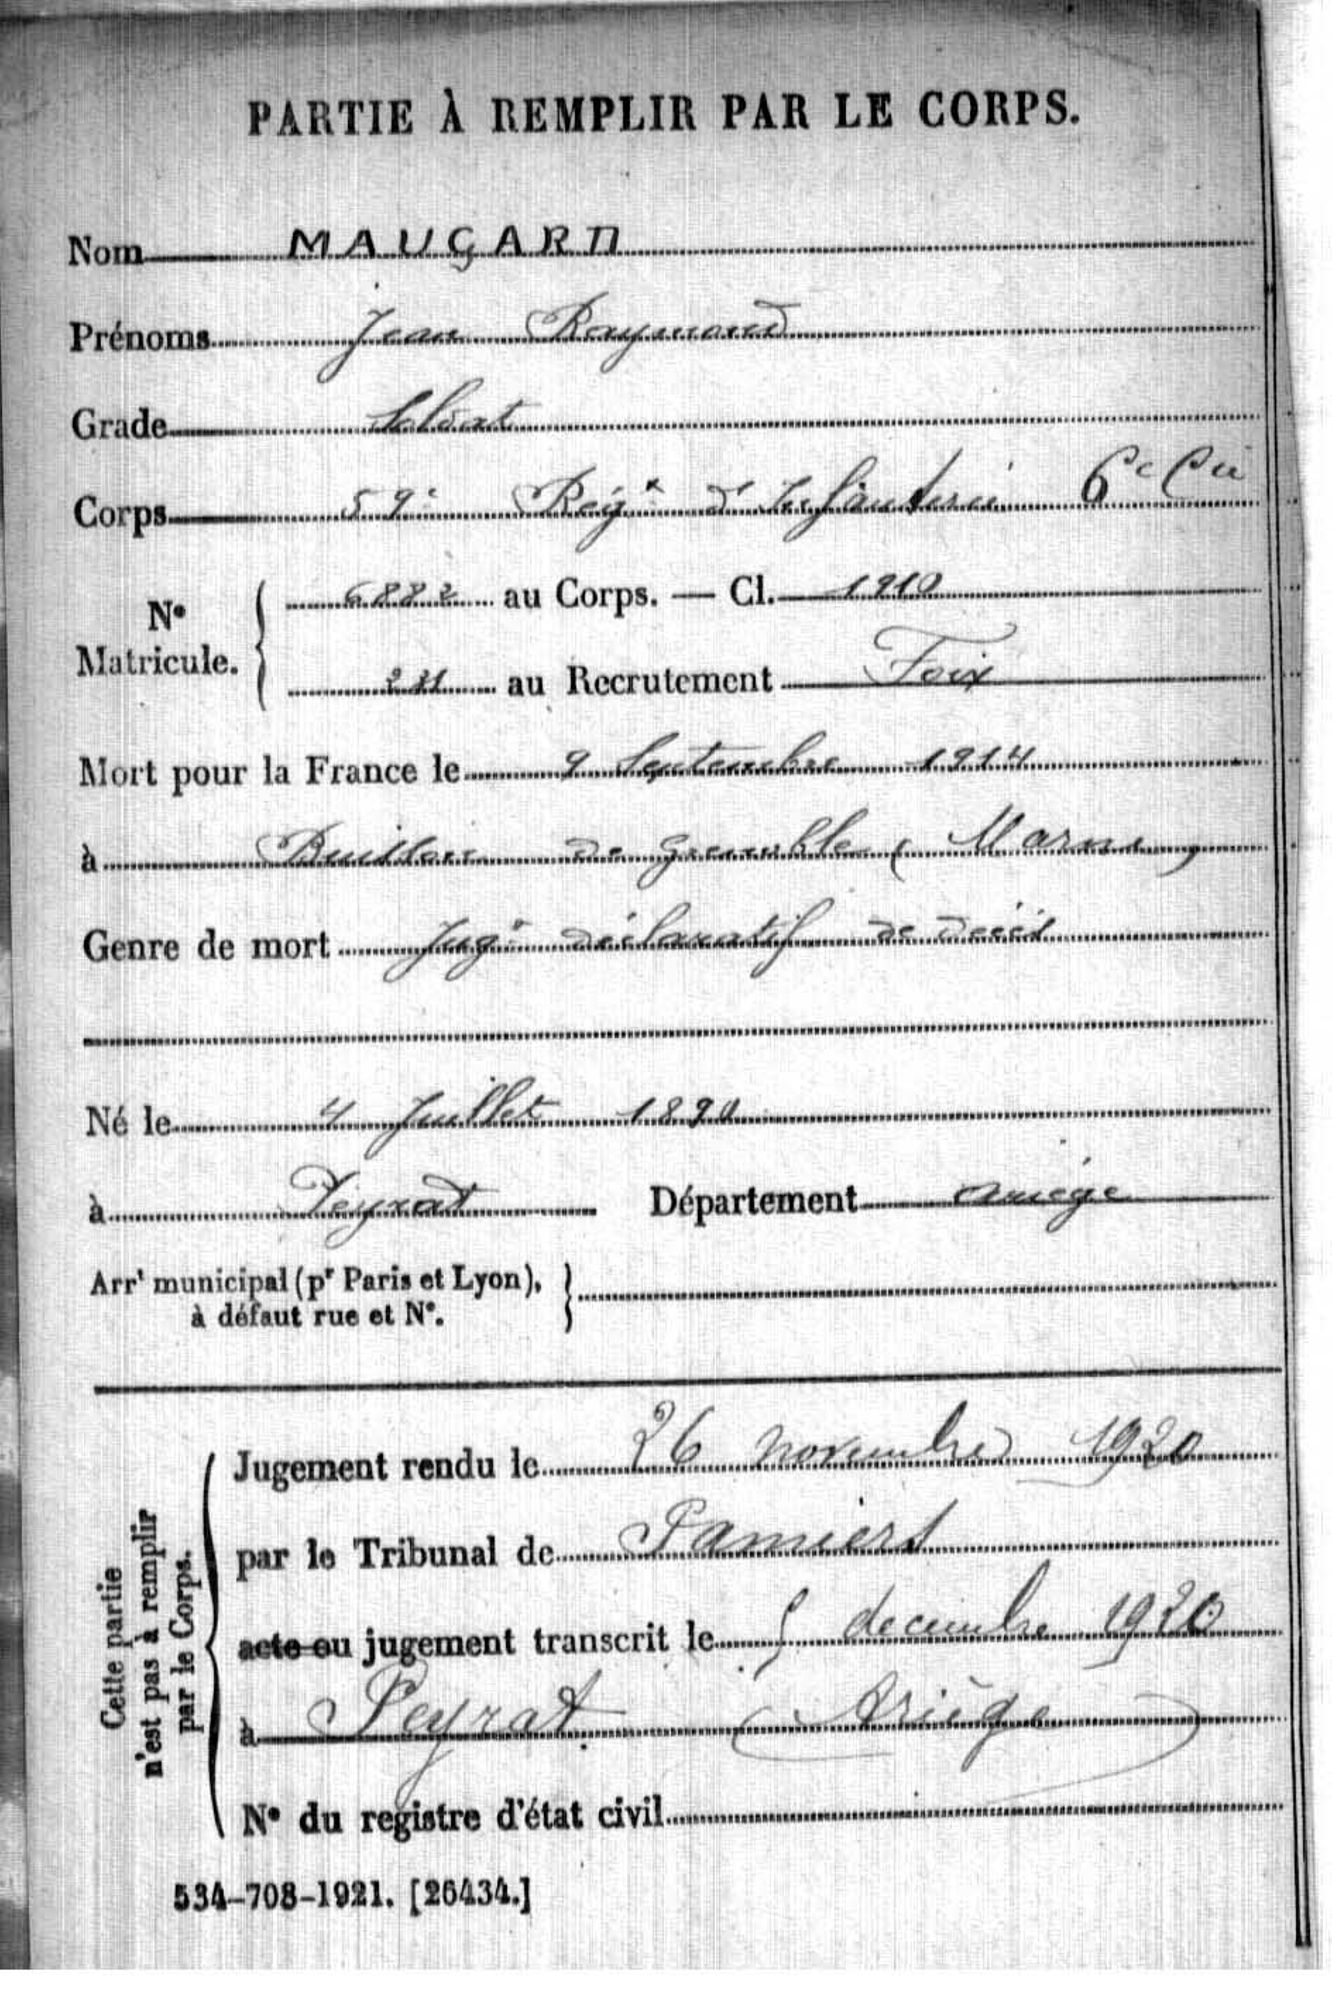 PARTIE À REMPLIR PAR LE CORPS.
Nom MAUÇARD
Prénoms Jean Raymond
Grade Soldat
Corps 59e Régt d'Infanterie 6e Cie
N° Matricule. 6882 au Corps. — Cl. 1910
au Recrutement Foix
Mort pour la France le 9 Septembre 1914
à de (Marne)
Genre de mort Jugt déclaratif de décès
Né le 4 Juillet 1890
à Peyrat Département Ariège
Arrt municipal (pr Paris et Lyon),
à défaut rue et N°.
Cette partie
n'est pas à remplir
par le Corps.
Jugement rendu le 26 novembre 1920
par le Tribunal de Pamiers
acte ou jugement transcrit le 5 decembre 1920
à Peyrat (Ariège)
N° du registre d'état civil
534-708-1921. [26434.]